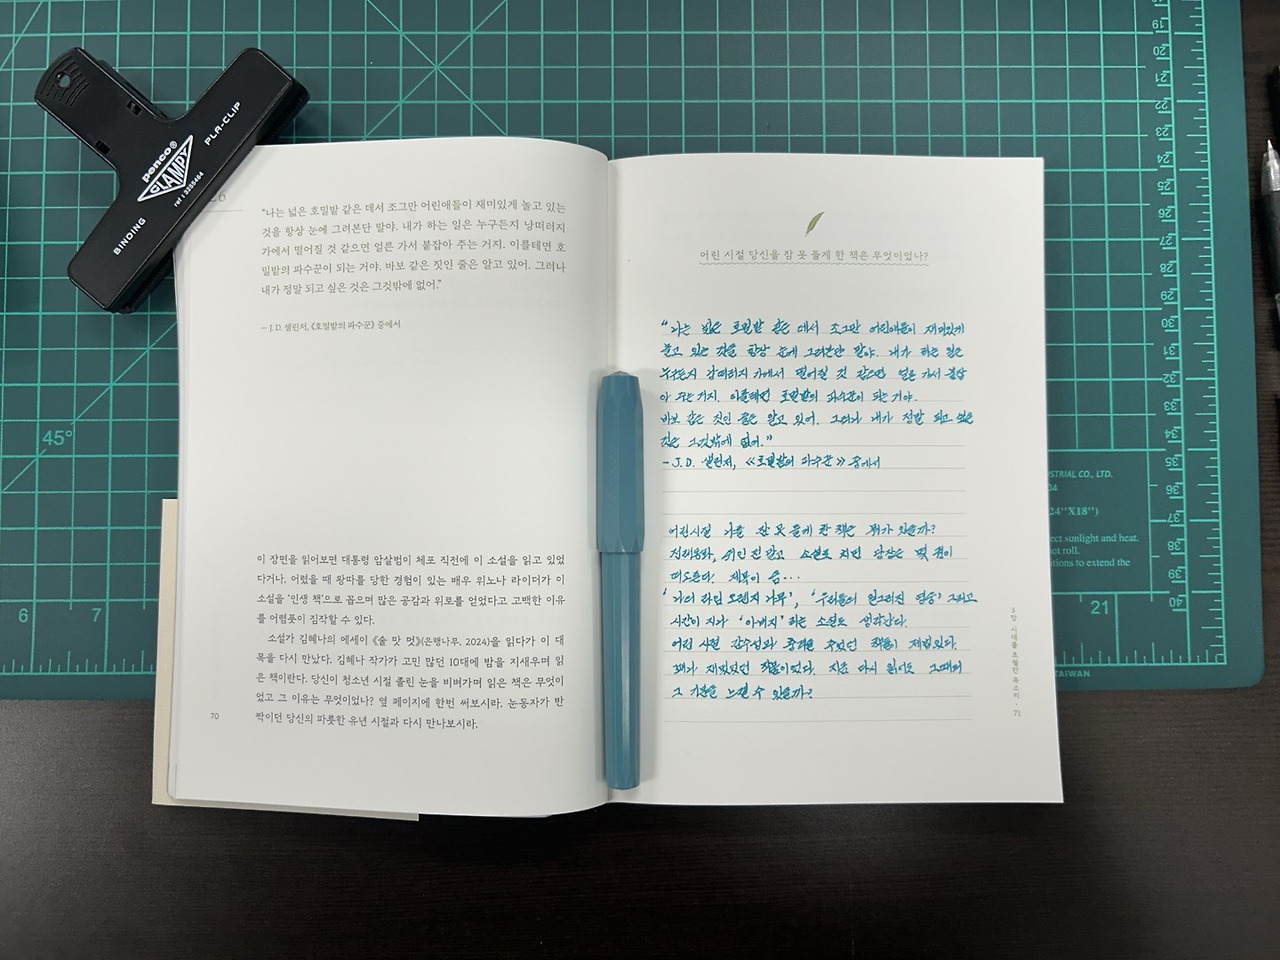 penco®
CLAMPY
ref | 3285484
BINDING
PLA-CLIP
26
“나는 넓은 호밀밭 같은 데서 조그만 어린애들이 재미있게 놀고 있는
것을 항상 눈에 그려본단 말야. 내가 하는 일은 누구든지 낭떠러지
가에서 떨어질 것 같으면 얼른 가서 붙잡아 주는 거지. 이를테면 호
밀밭의 파수꾼이 되는 거야. 바보 같은 짓인 줄은 알고 있어. 그러나
내가 정말 되고 싶은 것은 그것밖에 없어.”
— J. D. 샐린저, 《호밀밭의 파수꾼》 중에서
이 장면을 읽어보면 대통령 암살범이 체포 직전에 이 소설을 읽고 있었
다거나, 어렸을 때 왕따를 당한 경험이 있는 배우 위노나 라이더가 이
소설을 ‘인생 책’으로 꼽으며 많은 공감과 위로를 얻었다고 고백한 이유
를 어렴풋이 짐작할 수 있다.
소설가 김혜나의 에세이 《술 맛 멋》(은행나무, 2024)을 읽다가 이 대
목을 다시 만났다. 김혜나 작가가 고민 많던 10대에 밤을 지새우며 읽
은 책이란다. 당신이 청소년 시절 졸린 눈을 비벼가며 읽은 책은 무엇이
었고 그 이유는 무엇이었나? 옆 페이지에 한번 써보시라. 눈동자가 반
짝이던 당신의 파릇한 유년 시절과 다시 만나보시라.
70
어린 시절 당신을 잠 못 들게 한 책은 무엇이었나?
“나는 넓은 호밀밭 같은 데서 조그만 어린애들이 재미있게
놀고 있는 것을 항상 눈에 그려본단 말야. 내가 하는 일은
누구든지 낭떠러지 가에서 떨어질 것 같으면 얼른 가서 붙잡
아 주는 거지. 이를테면 호밀밭의 파수꾼이 되는 거야.
바보 같은 짓인 줄은 알고 있어. 그러나 내가 정말 되고 싶은
것은 그것밖에 없어.”
- J. D. 샐린저, 《호밀밭의 파수꾼》 중에서
어린시절 나를 잠 못 들게 한 책은 뭐가 있을까?
소설로 치면 몇 권이
떠오른다! 제목이 음...
‘나의 라임 오렌지 나무’, ‘우리들의 일그러진 영웅’ 그리고
시간이 지나 ‘아버지’라는 소설도 생각난다.
어린 시절 감수성과 주었던 책들이 제법있다.
꽤나 재밌었던 작품이었다. 지금 다시 읽어도 그때의
그 기분을 느낄 수 있을까?
5장 시대를 초월한 목소리 · 71
45°
6
7
21
19
20
21
22
23
24
25
26
27
28
29
30
31
32
33
34
35
36
37
38
39
40
STRIAL CO., LTD.
04
24"X18")
ect sunlight and heat.
not roll.
tions to extend the
TAIWAN